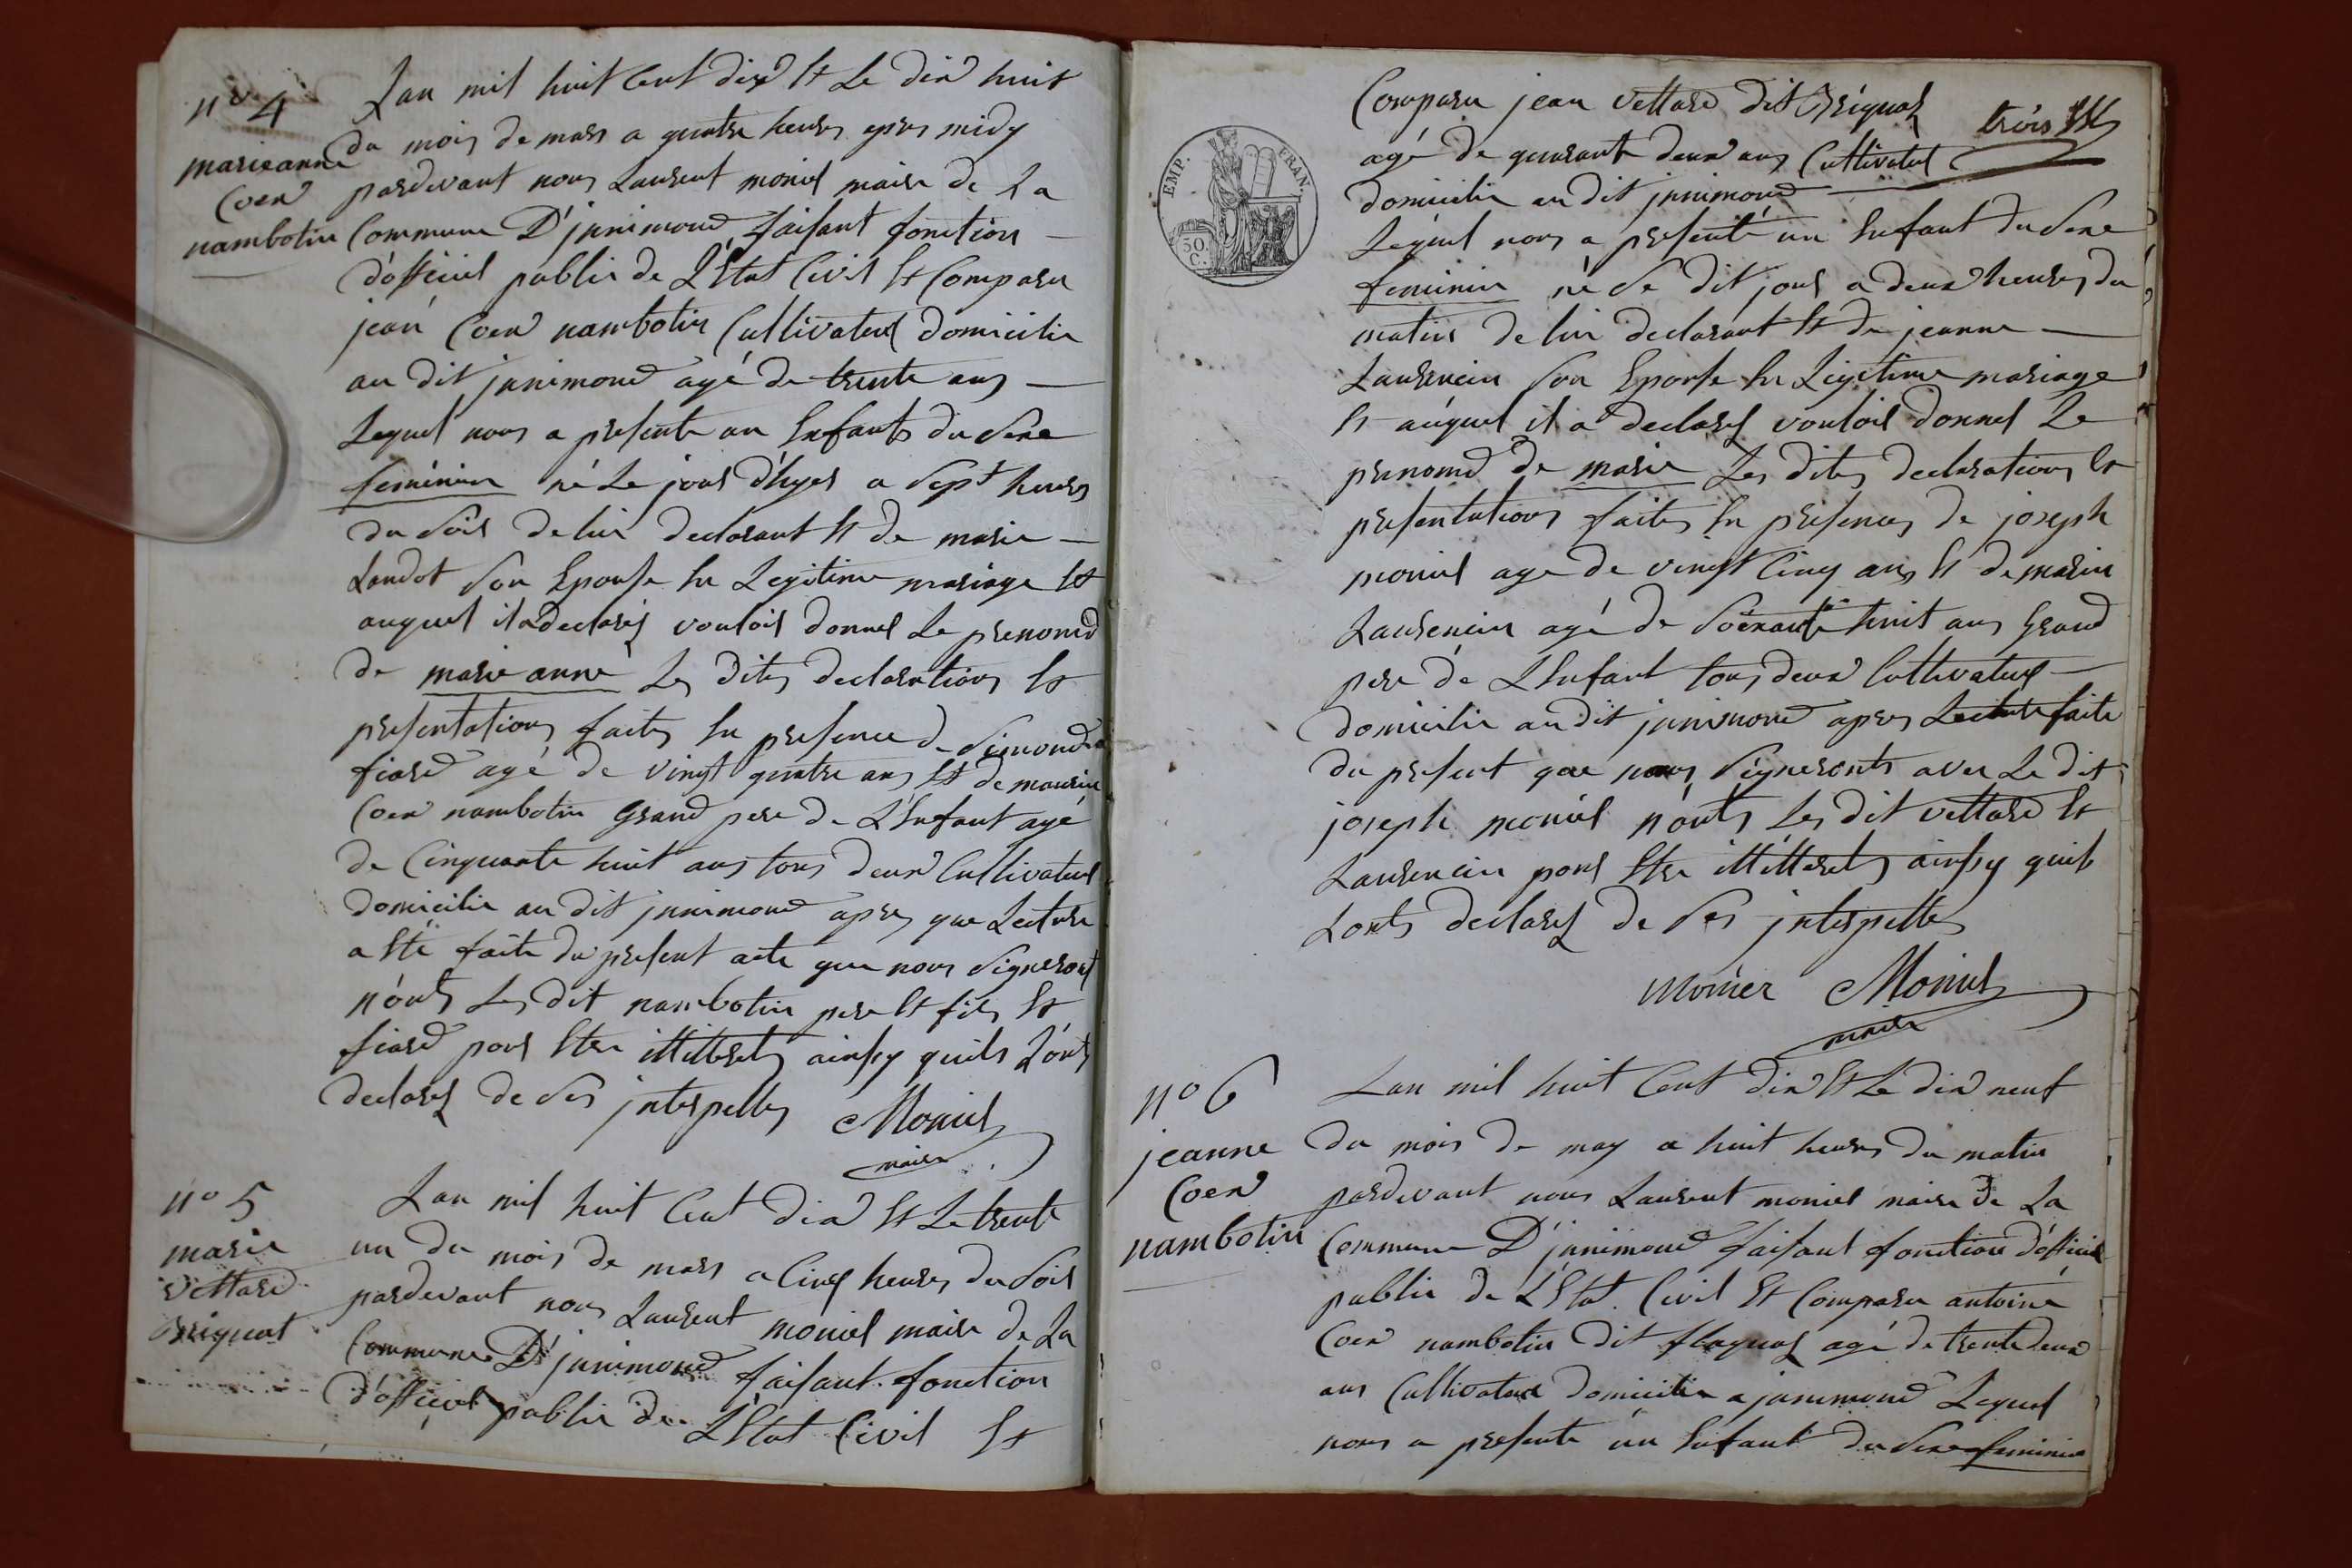 n° 4
marie anne
Coex
nambotin
Lan mil huit Cent dix Et Le dix huit
du mois de mars a quatre heures apres midy
pardevant nous Laurent monier maire de La
Commune D'junimond faisant fonction
d'officier public de L'Etat Civil Et Comparu
jean Coex nambotin Cultivateur domicilie
au dit junimond agé de trente ans
Lequel nous a presenté un Enfants du Sexe
feminin né Le jour d'hyer a Sept heures
du Soir de lui declarant Et de marie
Landot Son Epouse En Legitime mariage Et
auquel il a declarer vouloir donner Le prenomd
de marie anne Les dites declarations Et
presentations faites En presence de Simond
fiard agé de vingt quatre ans Et de maurin
Coex nambotin Grand pere de L'Enfant agé
de Cinquante huit ans tous deux Cultivateur
domicilie au dit junimond apres que Lecture
a Eté faite du present acte que nous Signeront
n'onts Les dit nambotin pere Et fils Et
fiard pour Etre illitterets ainsy quils L'onts
declarer de Ses jnterpelles
Monier
maire
n° 5
marie
vettard
Briquat
Lan mil huit Cent dix Et Le trente
un du mois de mars a Cinq heures du Soir
pardevant nous Laurent monier maire de La
Commune D'junimond faisant fonction
d'officier public de L'Etat Civil Et
EMP. FRAN.
50. C.
trois
Comparu jean vettard dit Briquat
agé de quarante deux ans Cultivateur
domicilie au dit junimond
Lequel nous a presenté un Enfant du Sexe
feminin né Se dit jour a deux heures du
matin de lui declarant Et de jeanne
Laurencin Son Epouse En Legitime mariage
Et auquel il a declarer vouloir donner Le
prenomd de marie Les dites declarations Et
presentations faites En presences de joseph
monier age de vingt Cinq ans Et de marin
Laurencin agé de Soixante huit ans Grand
pere de L'Enfant tous deux Cultivateur
domicilie au dit junimond apres Lecture faite
du present que nous Signeronts avec Le dit
joseph monier n'onts Les dit vettard Et
Laurencin pour Etre illitterets ainsy quils
Lonts declarer de Ses jnterpelles
Monier Monier
maire
n° 6
jeanne
Coex
nambotin
Lan mil huit Cent dix Et Le dix neuf
du mois de may a huit heures du matin
pardevant nous Laurent monier maire de La
Commune D'junimond faisant fonction d'officier
public de L'Etat Civil Et Comparu antoine
Coex nambotin dit flaquas agé de trente deux
ans Cultivateur domicilie a junimond Lequel
nous a presenté un Enfant du Sexe feminin